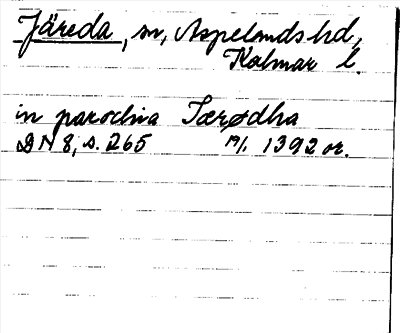 Järeda, sn, Aspelands hd,
Kalmar l.
in parochia Iærødha
DN 8, s. 265 19/1 1392 or.